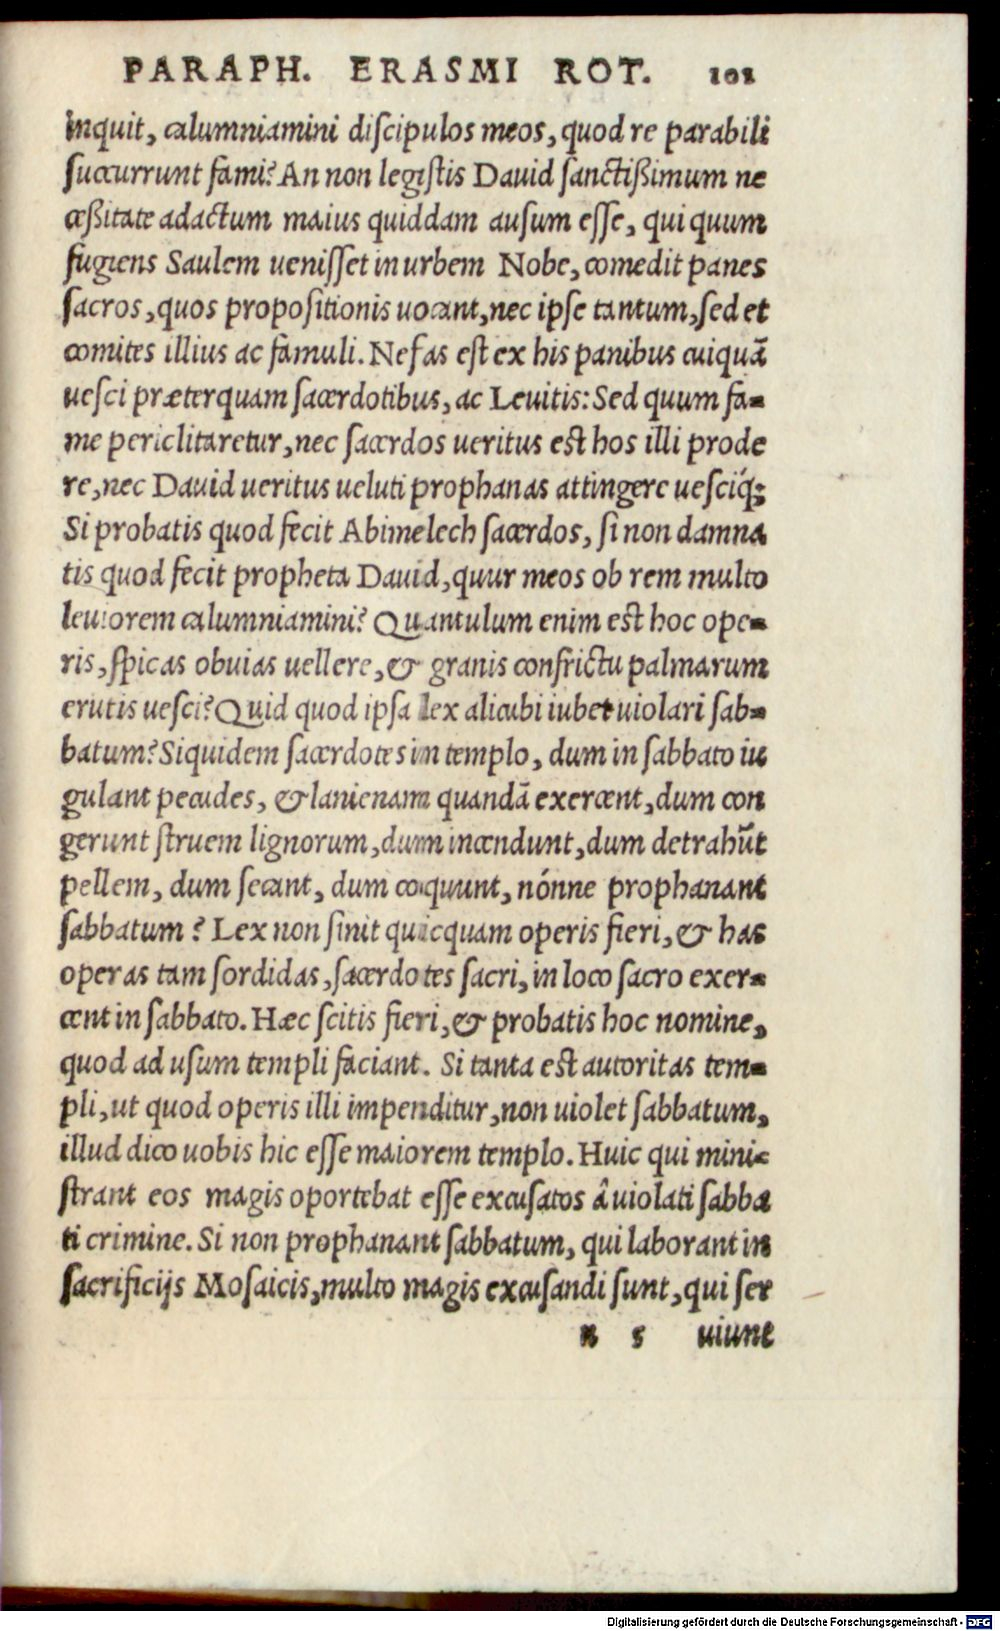 PARAPH. ERASMI ROT. 101
inquit, calumniamini discipulos meos, quod re parabili
succurrunt fami? An non legistis Dauid sanctißimum ne
ceßitate adactum maius quiddam ausum esse, qui quum
fugiens Saulem uenisset in urbem Nobe, comedit panes
sacros, quos propositionis uocant, nec ipse tantum, sed et
comites illius ac famuli. Nefas est ex his panibus cuiquã
uesci præterquam sacerdotibus, ac Leuitis: Sed quum fa-
me periclitaretur, nec sacerdos ueritus est hos illi prode
re, nec Dauid ueritus ueluti prophanas attingere uesciq́;
Si probatis quod fecit Abimelech sacerdos, si non damna
tis quod fecit propheta Dauid, quur meos ob rem multo
leuiorem calumniamini? Quantulum enim est hoc ope-
ris, spicas obuias uellere, & granis confrictu palmarum
erutis uesci? Quid quod ipsa lex alicubi iubet uiolari sab-
batum? Siquidem sacerdotes in templo, dum in sabbato iu
gulant pecudes, & lanienam quandã exercent, dum con
gerunt struem lignorum, dum incendunt, dum detrahũt
pellem, dum secant, dum coquunt, nónne prophanant
sabbatum? Lex non sinit quicquam operis fieri, & has
operas tam sordidas, sacerdotes sacri, in loco sacro exer-
cent in sabbato. Hæc scitis fieri, & probatis hoc nomine,
quod ad usum templi faciant. Si tanta est autoritas tem-
pli, ut quod operis illi impenditur, non uiolet sabbatum,
illud dico uobis hic esse maiorem templo. Huic qui mini-
strant eos magis oportebat esse excusatos â uiolati sabba
ti crimine. Si non prophanant sabbatum, qui laborant in
sacrificijs Mosaicis, multo magis excusandi sunt, qui ser
n 5 uiunt
Digitalisierung gefördert durch die Deutsche Forschungsgemeinschaft - DFG